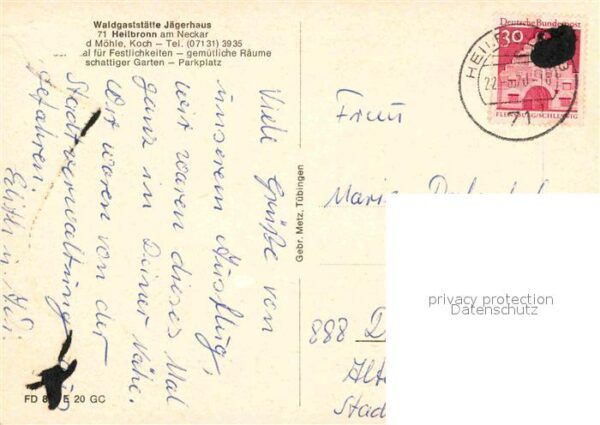 Waldgaststätte Jägerhaus
71 Heilbronn am Neckar
d Möhle, Koch — Tel. (07131) 3935
al für Festlichkeiten — gemütliche Räume
schattiger Garten — Parkplatz
Viele Grüße von
unserem Ausflug,
wir waren dieses Mal
ganz in Deiner Nähe.
Wir waren von der
Stadtverwaltung
gefahren.
FD 8 E 20 GC
Gebr. Metz, Tübingen
Deutsche Bundespost
30
FLENSBURG/SCHLESWIG
HEILB
22
71
Frau
Maria
888 D
Alte
Stad
privacy protection
Datenschutz